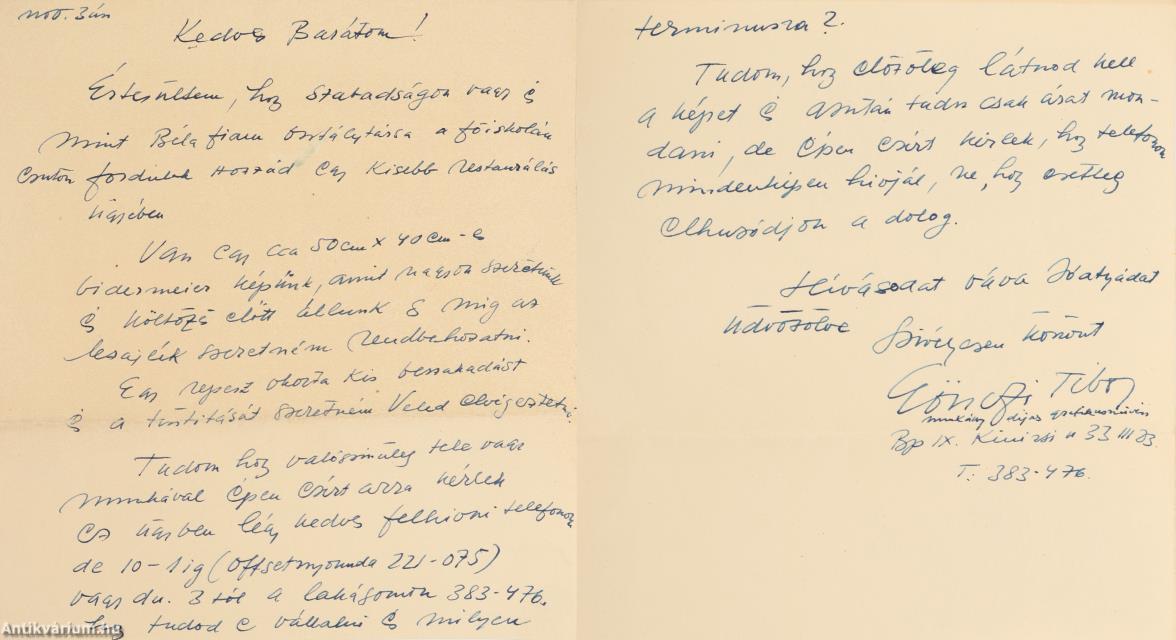 nov. 3án
Kedves Barátom!
Értesültem, hogy szabadságon vagy és
mint Béla fiam osztálytársa a főiskolán
ezuton fordulok Hozzád egy kisebb restaurálás
ügyében
Van egy cca 50 cm x 40 cm-s
bidermeier képünk, amit nagyon szeretünk
és költözés előtt állunk s míg az
lezajlik szeretném rendbehozatni.
Egy repesz okozta kis beszakadást
és a tisztitását szeretném Veled elvégeztetni
Tudom hogy valószinüleg tele vagy
munkával éppen ezért arra kérlek
ez ügyben légy kedves felhivni telefonon
de 10-1ig (Offsetnyomda 221-075)
vagy du. 3 tól a lakásomon 383-476.
hogy tudod e vállalni és milyen
terminusra?
Tudom, hogy előzőleg látnod kell
a képet és azután tudsz csak árat mon-
dani, de éppen ezért kérlek, hogy telefonon
mindenképen hívjál, ne, hogy esetleg
elhuzódjon a dolog.
Hívásodat várva Édesatyádat
üdvözölve
Szivélyesen köszönt
Gönczi Tibor
munkácsy dijas grafikusművész
Bp IX. Kinizsi u 33 III 23.
T: 383-476.
Antikvárium.hu